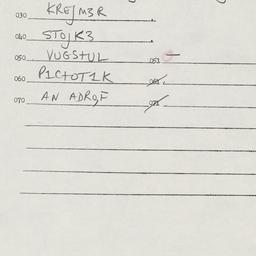 030 KREJM3R .
040 STOJK3 .
050 VUGS+UL 051 –
060 P1C+OT1K 061 .
070 AN ADROF 071